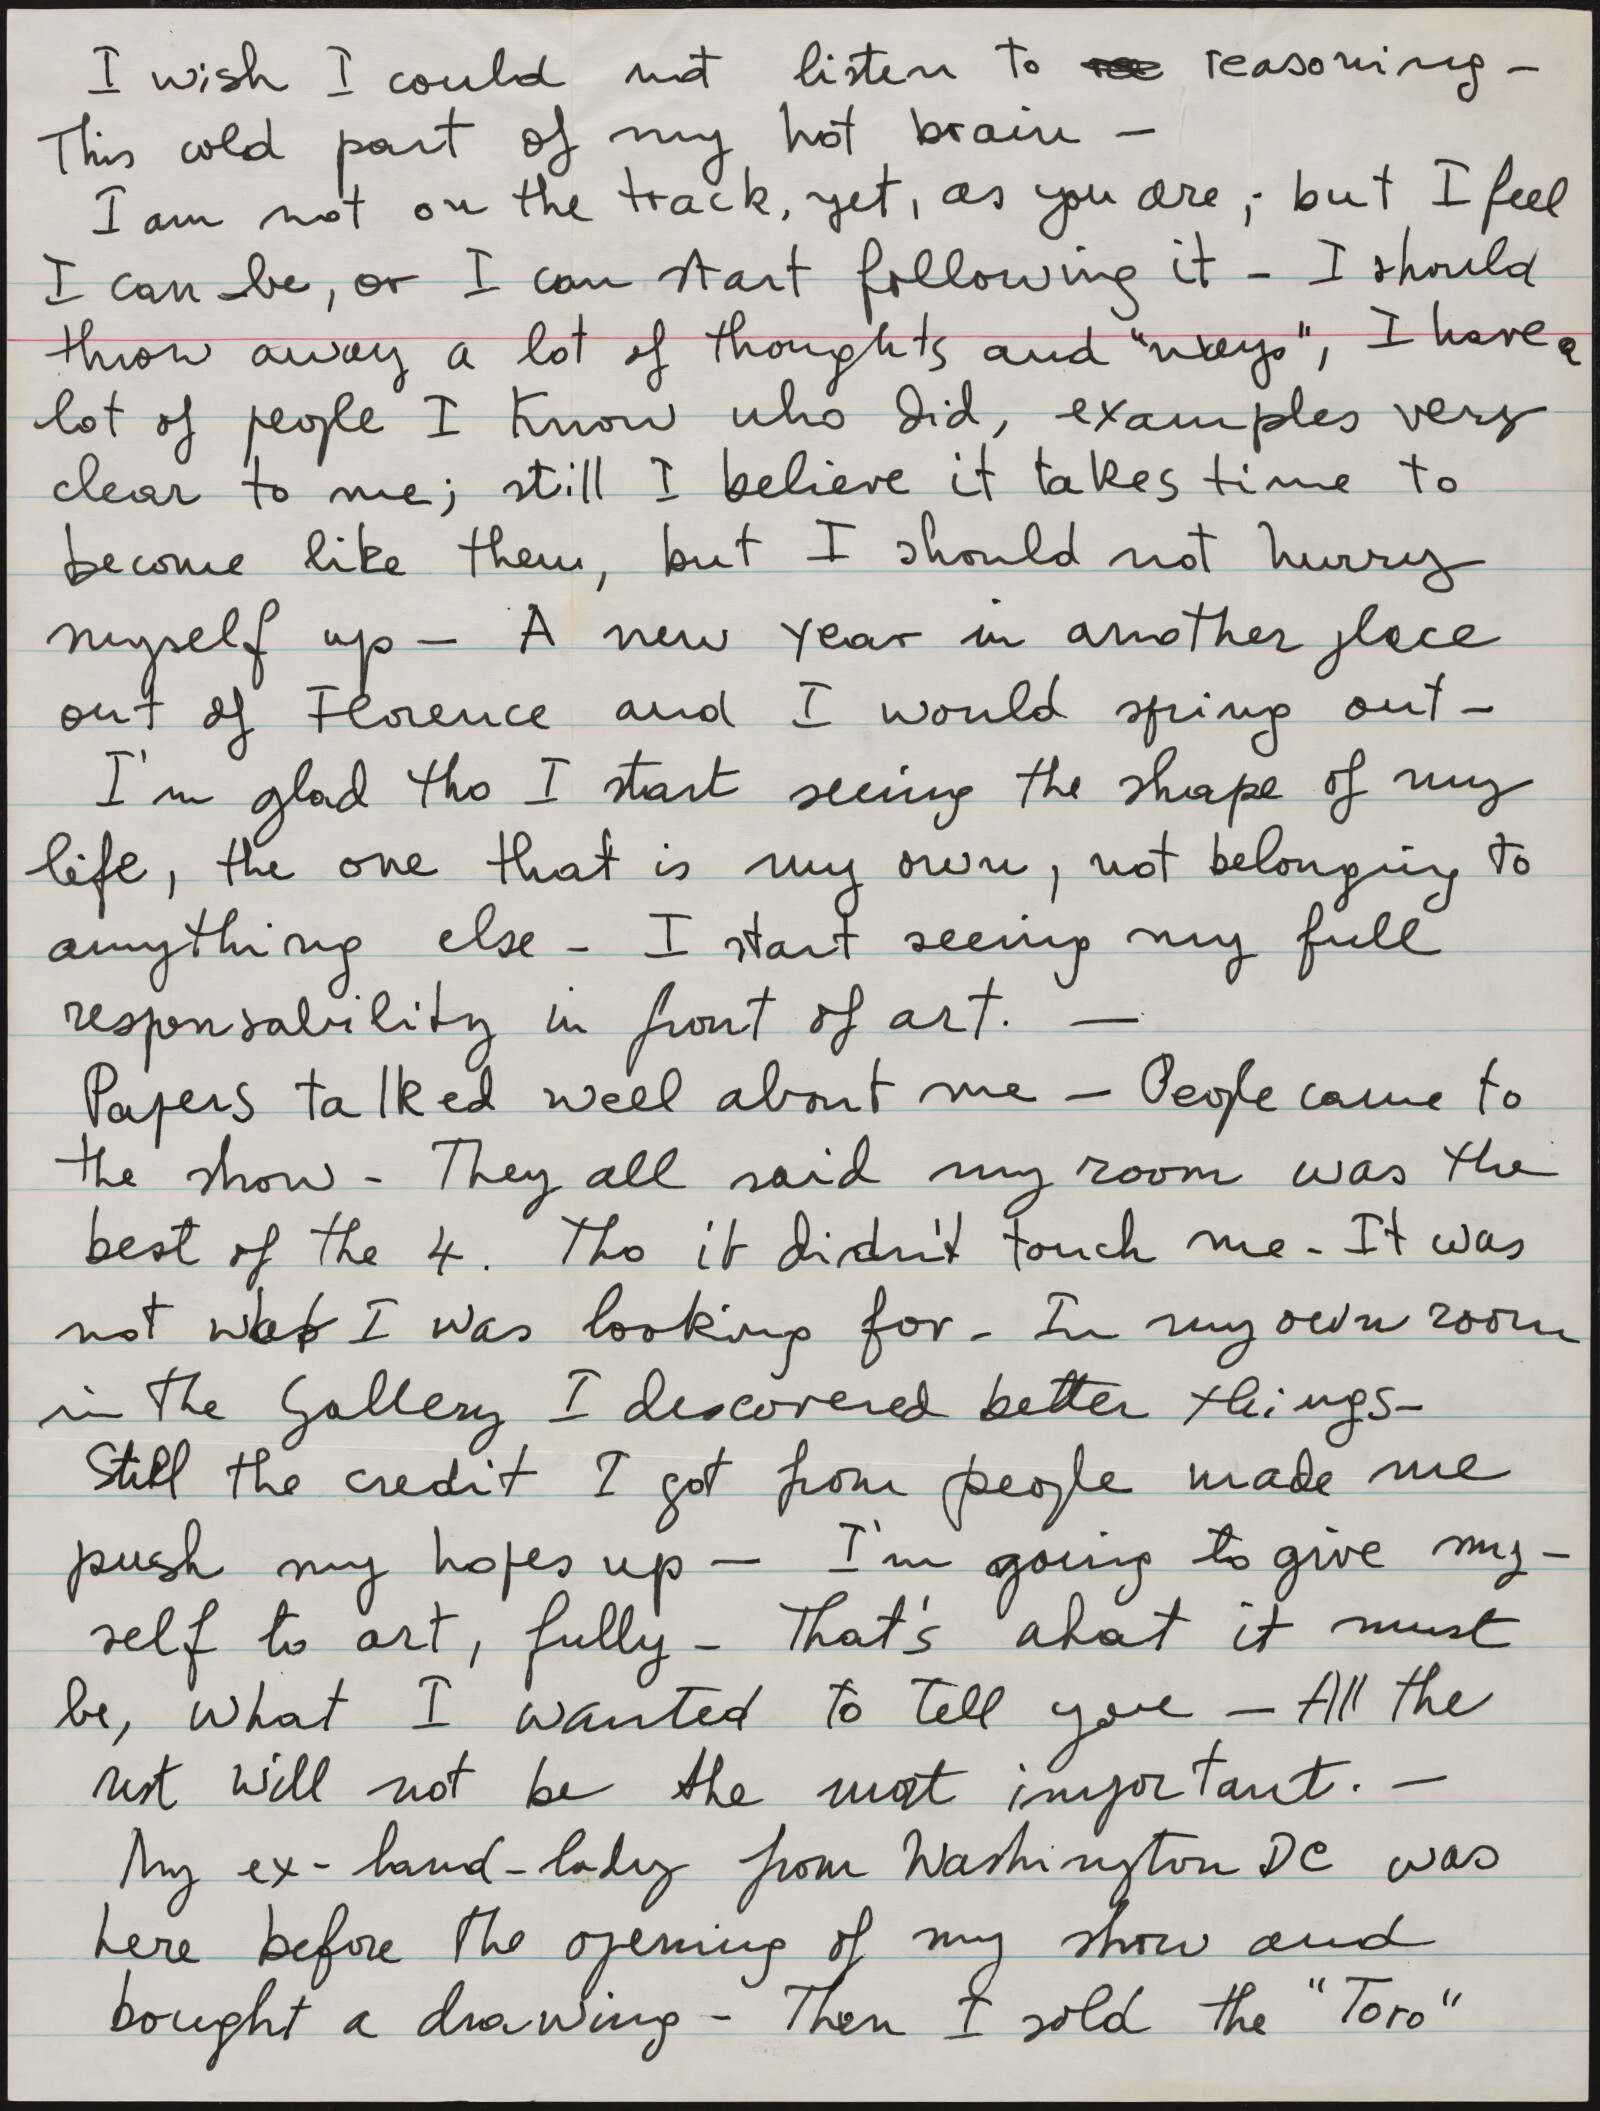 I wish I could not listen to reasoning –
This cold part of my hot brain –
I am not on the track, yet, as you are, – but I feel
I can be, or I can start following it – I should
throw away a lot of thoughts and "ways", I have a
lot of people I know who did, examples very
clear to me; still I believe it takes time to
become like them, but I should not hurry
myself up – A new year in another place
out of Florence and I would spring out –
I'm glad tho I start seeing the shape of my
life, the one that is my own, not belonging to
anything else – I start seeing my full
responsability in front of art. –
Papers talked well about me – People came to
the show – They all said my room was the
best of the 4. Tho it didn't touch me – It was
not what I was looking for – In my own room
in the Gallery I descovered better things –
Still the credit I got from people made me
push my hopes up – I'm going to give my-
self to art, fully – That's ahat it must
be, what I wanted to tell you – All the
rest will not be the most important. –
My ex-land-lady from Washington DC was
here before the opening of my show and
bought a drawing – Then I sold the "Toro"